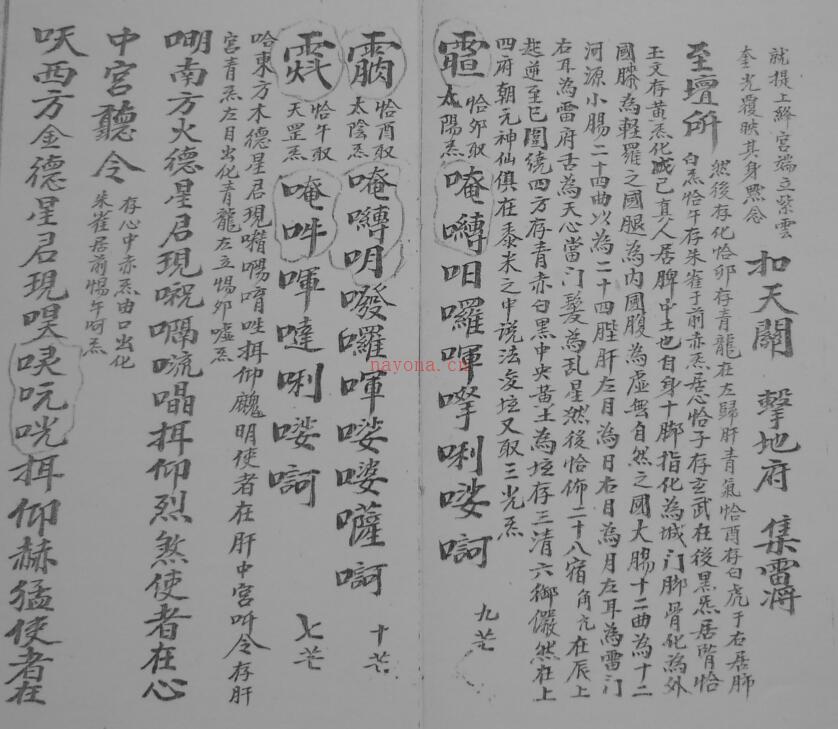 就提上絳宮端立紫雲
奎光覆映其身黙念
扣天關 擊地府 集雷
然後存化恰卯存青龍在左歸肝青氣恰酉存白虎于右居肺
至壇所
白炁恰午存朱雀于前赤炁居心恰子存玄武在後黑炁居腎恰
玉文存黃炁化成己真人居脾中土也自身十脚指化為城门脚骨化為外
國膝為輕羅之國腿為内國腹為虛無自然之國大腸十二曲為十二
河源小腸二十四曲以為二十四陛肝左目為日右目為月左耳為雷门
右耳為雷府舌為天心當门髮為乱星然後恰仰二十八宿角亢在辰上
起逆至巳圍繞四方存青赤白黑中央黃土為垣存三清六御儼然在上
四府朝元神仙俱在黍米之中説法變垣又取三光炁
恰卯取
太陽炁
唵囀囉喗唎娑訶 九芒
恰酉取
太陰炁
唵囀囉喗娑娑訶 十芒
恰午取
天罡炁
唵吽喗噠唎娑訶 七芒
哈東方木德星君現仰魑明使者在肝中宮吽令存肝
宮青炁左目出化青龍左立惕卯噓炁
南方火德星君現仰烈煞使者在心
中宮聽令
存心中赤炁由口出化
朱雀居前惕午呵炁
西方金德星君現仰赫猛使者在
nayona.cn